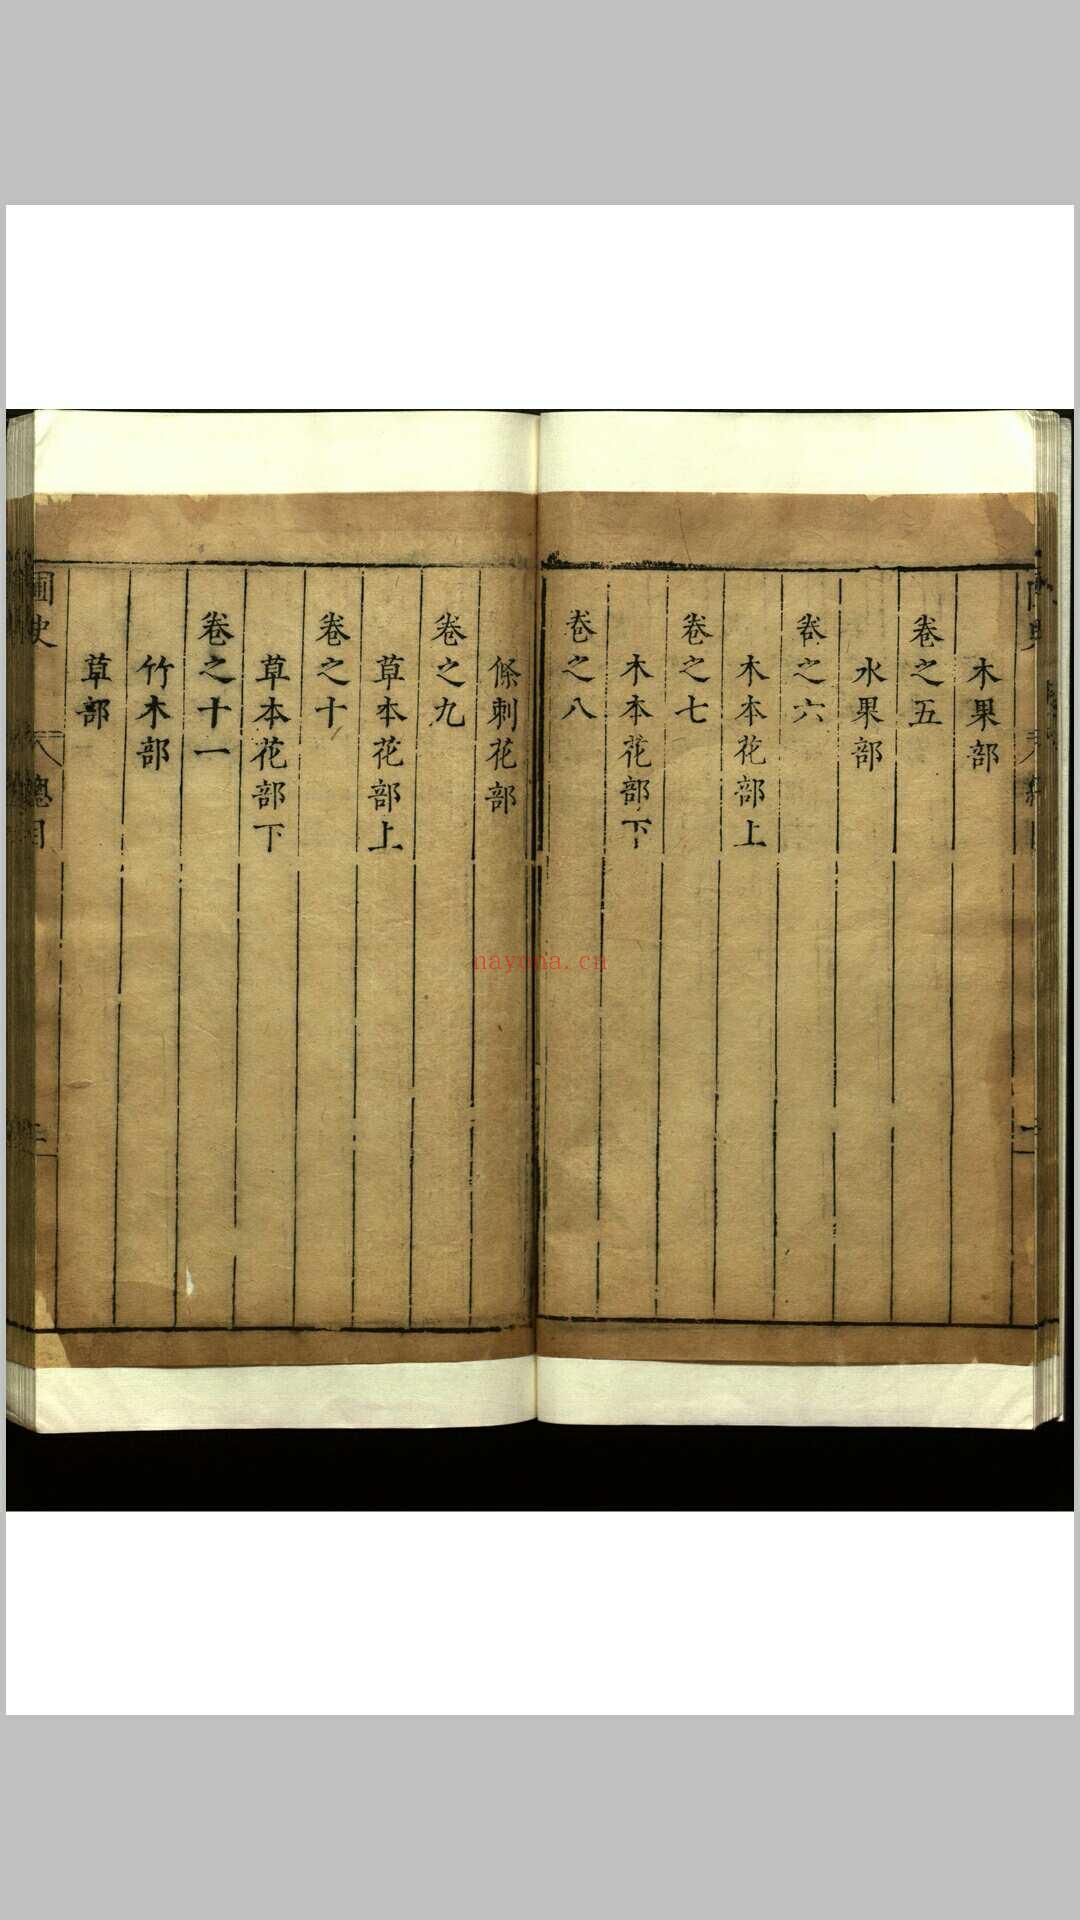 木果部
卷之五
水果部
卷之六
木本花部上
卷之七
木本花部下
卷之八
條刺花部
卷之九
草本花部上
卷之十
草本花部下
卷之十一
竹木部
草部
圃史
總目
nayona.cn